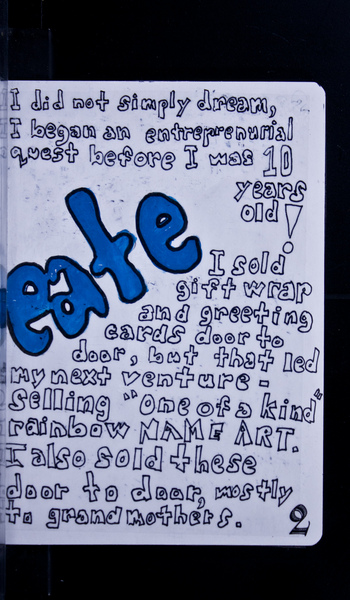 I did not simply dream,
I began an entreprenurial
quest before I was 10
years
old!
eate
I sold
gift wrap
and greeting
cards door to
door, but that led
my next venture -
selling "one of a kind"
rainbow NAME ART.
I also sold these
door to door, mostly
to grandmothers.
2